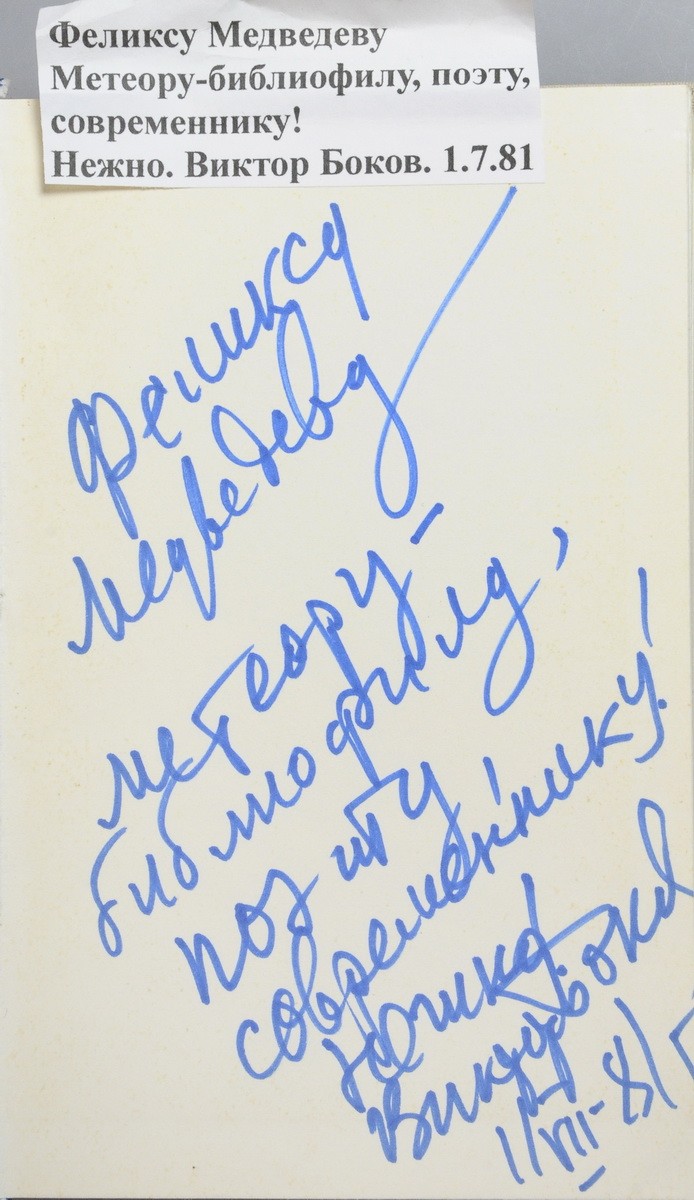 Феликсу Медведеву
Метеору-библиофилу, поэту,
современнику!
Нежно. Виктор Боков. 1.7.81
Феликсу
Медведеву
метеору-
библиофилу,
поэту
современнику!
Нежно!
Виктор Боков
1/VII-81